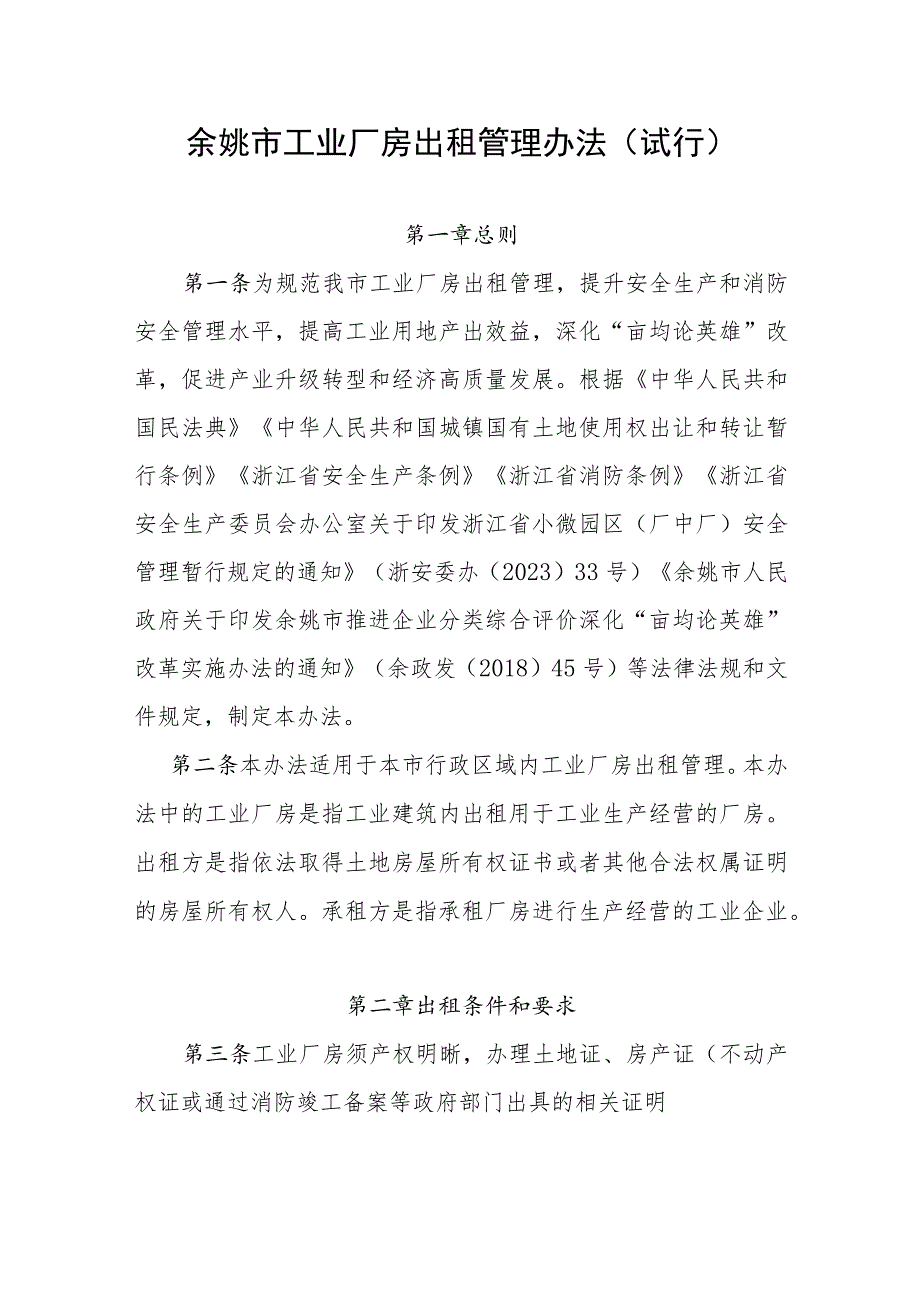 余姚市工业厂房出租管理办法（试行）
第一章总则
第一条为规范我市工业厂房出租管理，提升安全生产和消防
安全管理水平，提高工业用地产出效益，深化“亩均论英雄”改
革，促进产业升级转型和经济高质量发展。根据《中华人民共和
国民法典》《中华人民共和国城镇国有土地使用权出让和转让暂
行条例》《浙江省安全生产条例》《浙江省消防条例》《浙江省
安全生产委员会办公室关于印发浙江省小微园区（厂中厂）安全
管理暂行规定的通知》（浙安委办（2023）33号）《余姚市人民
政府关于印发余姚市推进企业分类综合评价深化“亩均论英雄”
改革实施办法的通知》（余政发（2018）45号）等法律法规和文
件规定，制定本办法。
第二条本办法适用于本市行政区域内工业厂房出租管理。本办
法中的工业厂房是指工业建筑内出租用于工业生产经营的厂房。
出租方是指依法取得土地房屋所有权证书或者其他合法权属证明
的房屋所有权人。承租方是指承租厂房进行生产经营的工业企业。
第二章出租条件和要求
第三条工业厂房须产权明晰，办理土地证、房产证（不动产
权证或通过消防竣工备案等政府部门出具的相关证明